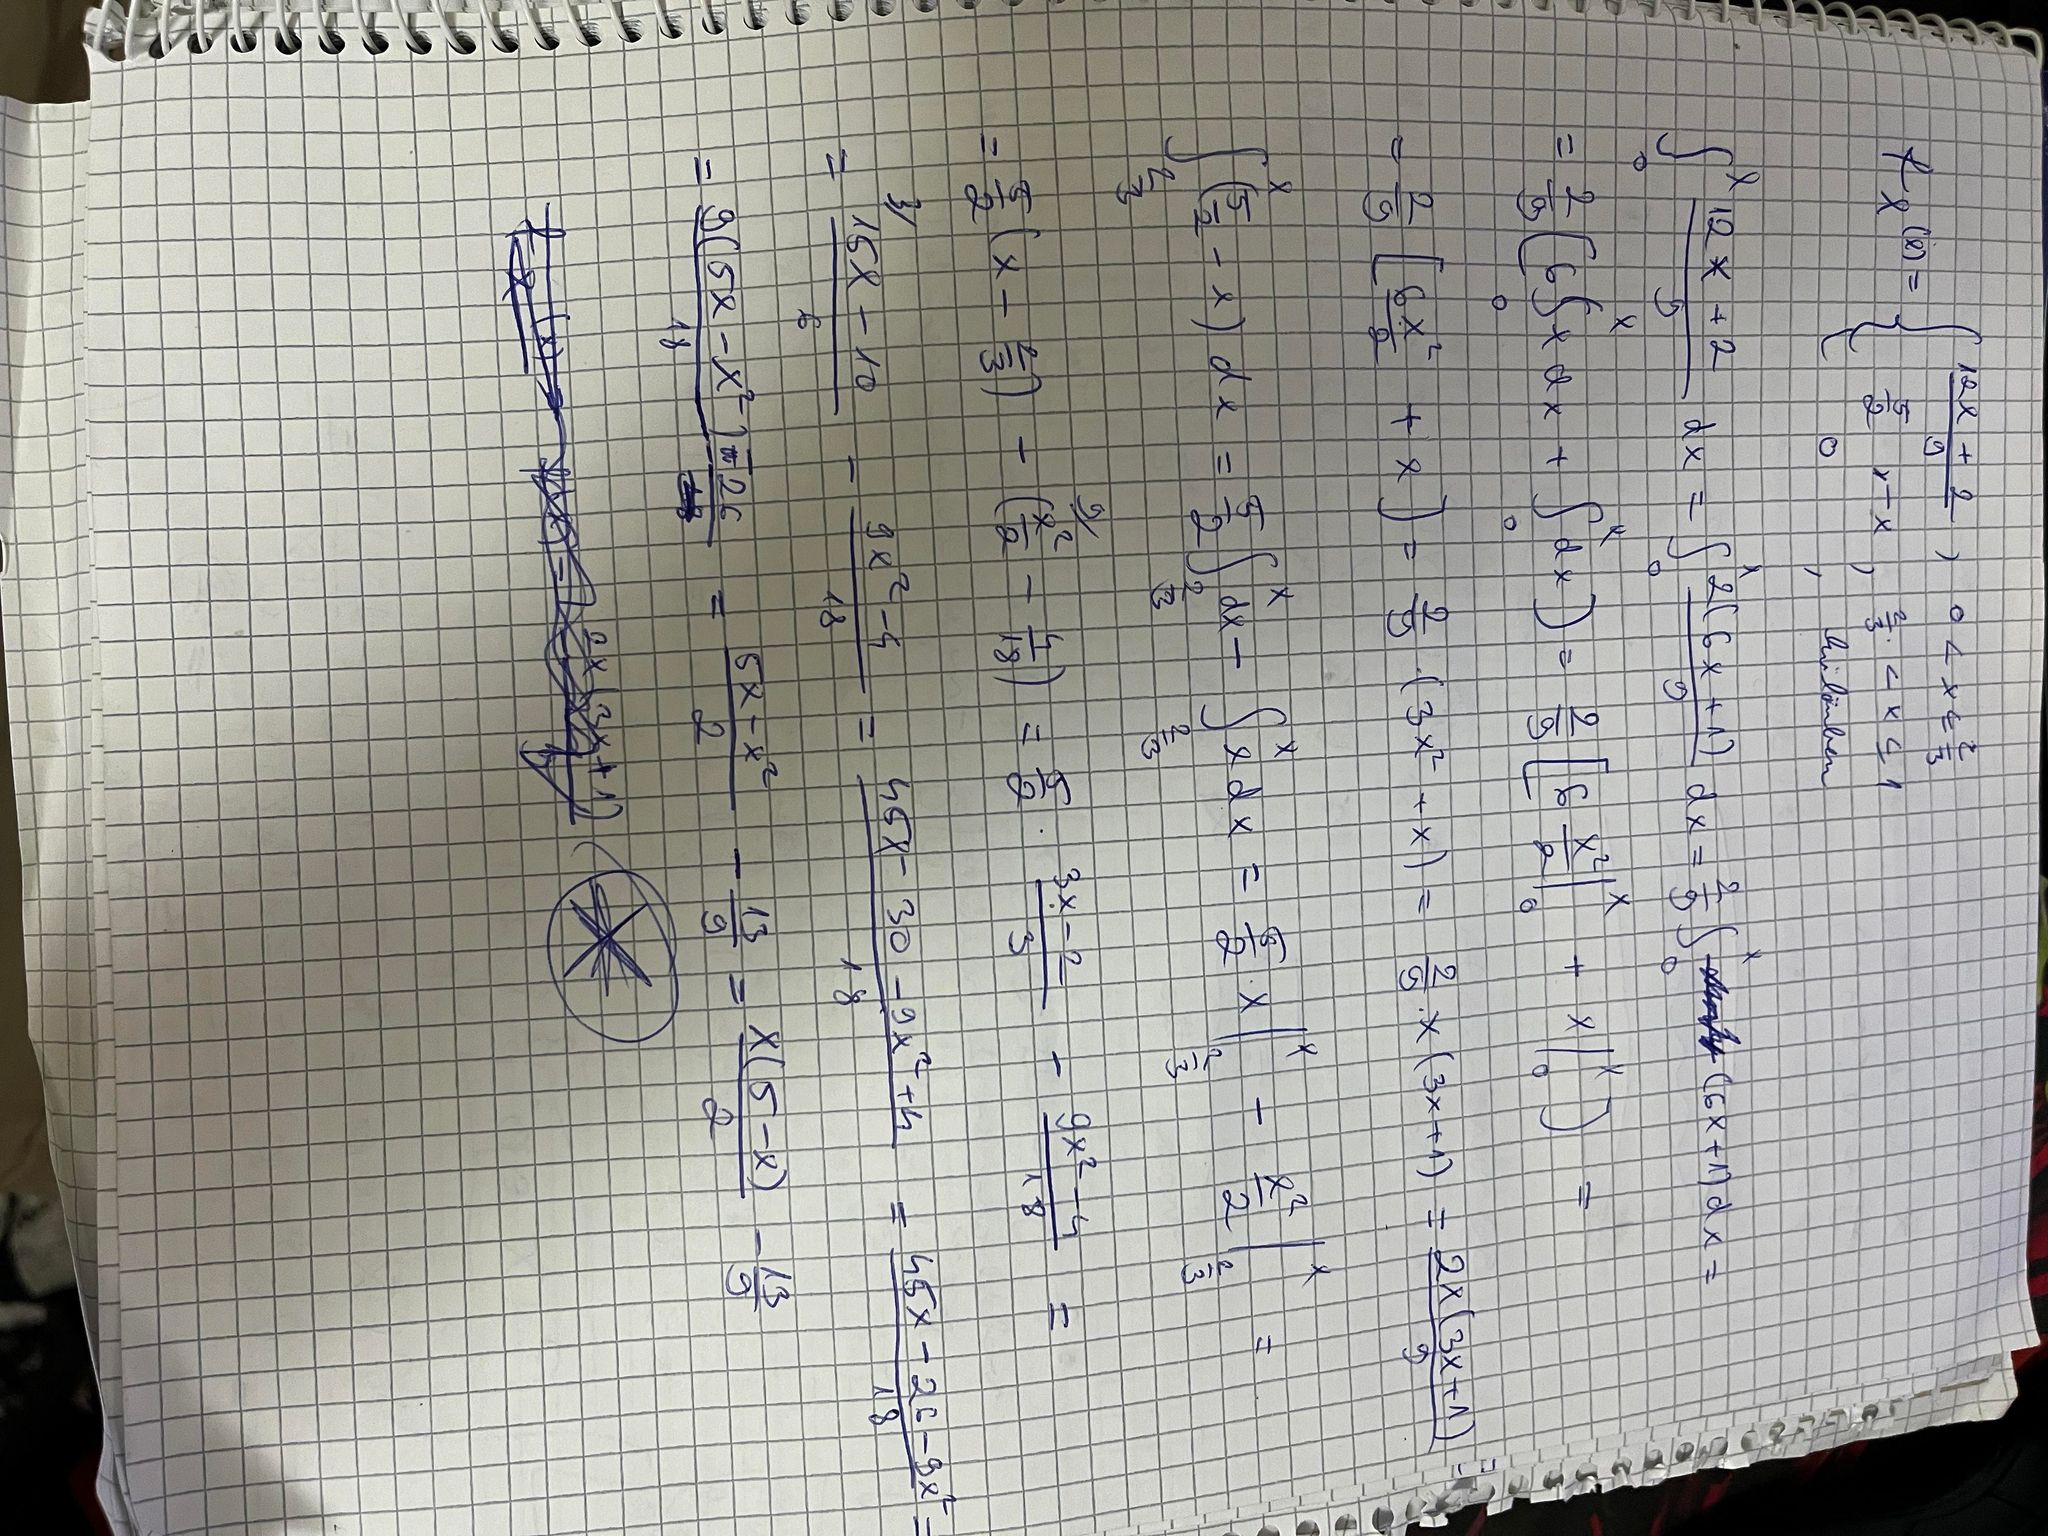 f_X(x) = { (12x+2)/9 , 0 < x ≤ 2/3
{ 5/2 - x , 2/3 < x ≤ 1
{ 0 , különben
∫_0^x (12x+2)/9 dx = ∫_0^x 2(6x+1)/9 dx = 2/9 ∫_0^x (6x+1) dx =
= 2/9 (6 ∫_0^x x dx + ∫_0^x dx) = 2/9 [6 x²/2 |_0^x + x |_0^x) =
= 2/9 [6x²/2 + x) = 2/9 · (3x² + x) = 2/9 · x (3x+1) = 2x(3x+1)/9
∫_{2/3}^x (5/2 - x) dx = 5/2 ∫_{2/3}^x dx - ∫_{2/3}^x x dx = 5/2 · x |_{2/3}^x - x²/2 |_{2/3}^x =
= 5/2 (x - 2/3) - (9/ x²/2 - 4/18) = 5/2 · (3x-2)/3 - (9x²-4)/18 =
= 3/ (15x-10)/6 - (9x²-4)/18 = (45x-30-9x²+4)/18 = (45x-26-9x²)/18 =
= 9(5x-x²)-26/18 = (5x-x²)/2 - 13/9 = x(5-x)/2 - 13/9
2x(3x+1)